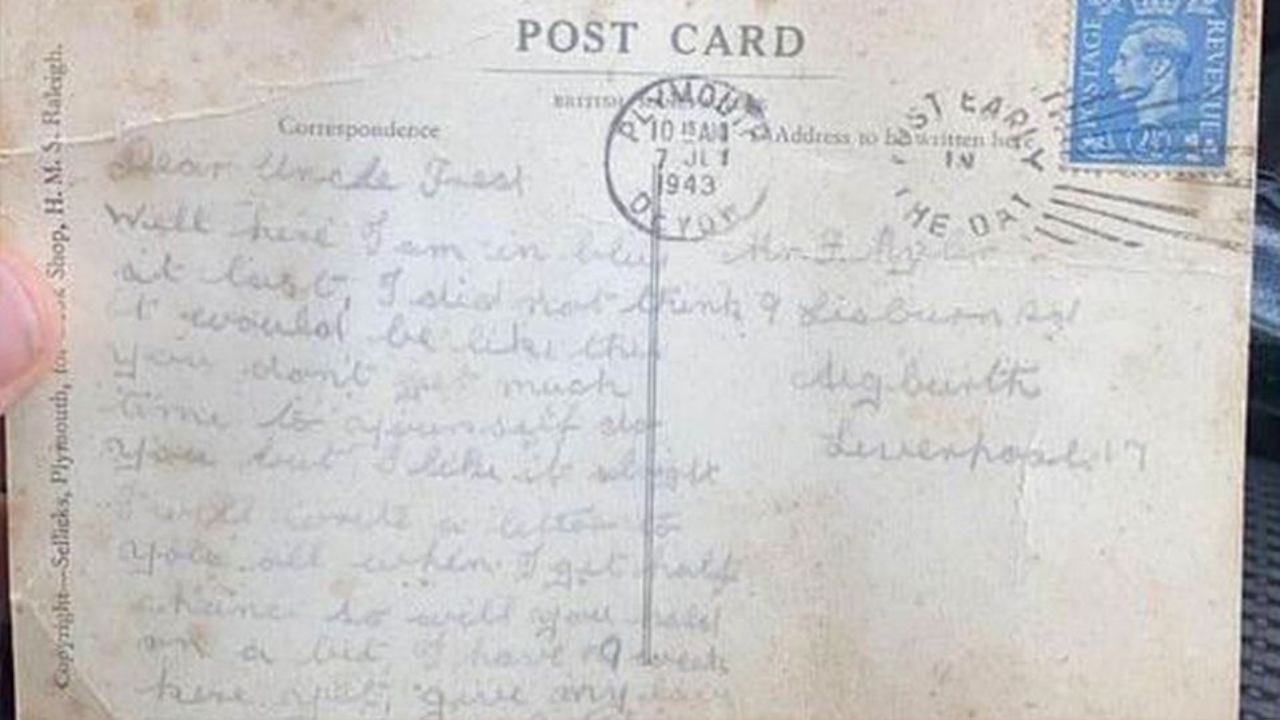 POST CARD
BRITISH
Correspondence
Address to be written here
PLYMOUTH
10 15 AM
7 JLY
1943
DEVON
POST EARLY
IN
THE DAY
POSTAGE
REVENUE
Copyright—Sellicks, Plymouth, for Shop, H.M.S. Raleigh.
Dear Uncle
Well here I am in blue
at last, I did not think
it would be like this
you don't get much
time to yourself do
you but I like it alright
I will write a letter to
you all when I get half
chance so will you hold
on a bit, I have 9 weeks
here yet, give my
Mr F.
9 Lisburn Rd
Aigburth
Liverpool 17